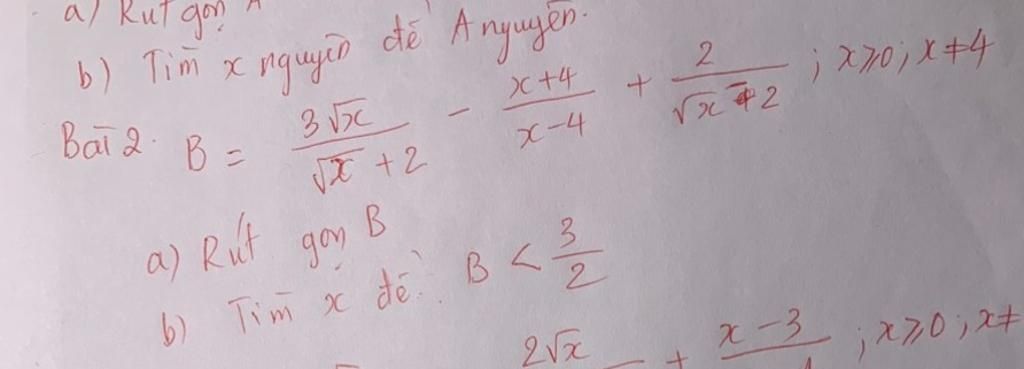 a) Rút gọn A
b) Tìm x nguyên để A nguyên.
Bài 2. B = 3√x / (√x + 2) - (x+4) / (x-4) + 2 / (√x + 2) ; x≥0; x≠4
a) Rút gọn B
b) Tìm x để: B < 3/2
2√x + x-3 ; x≥0; x≠